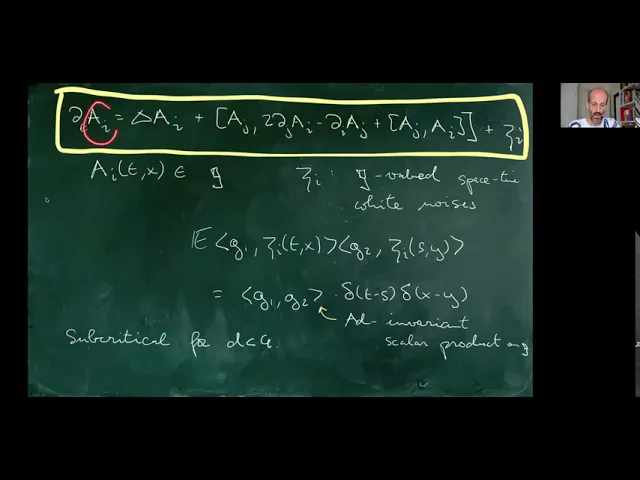 ∂ₜAᵢ = ΔAᵢ + [Aⱼ, 2∂ⱼAᵢ - ∂ᵢAⱼ + [Aⱼ, Aᵢ]] + ξᵢ
Aᵢ(t,x) ∈ 𝔤 ξᵢ : 𝔤-valued space-time
white noises
𝔼⟨g₁, ξᵢ(t,x)⟩⟨g₂, ξᵢ(s,y)⟩
= ⟨g₁, g₂⟩ · δ(t-s) δ(x-y)
Ad-invariant
scalar product on 𝔤
Subcritical for d<4.